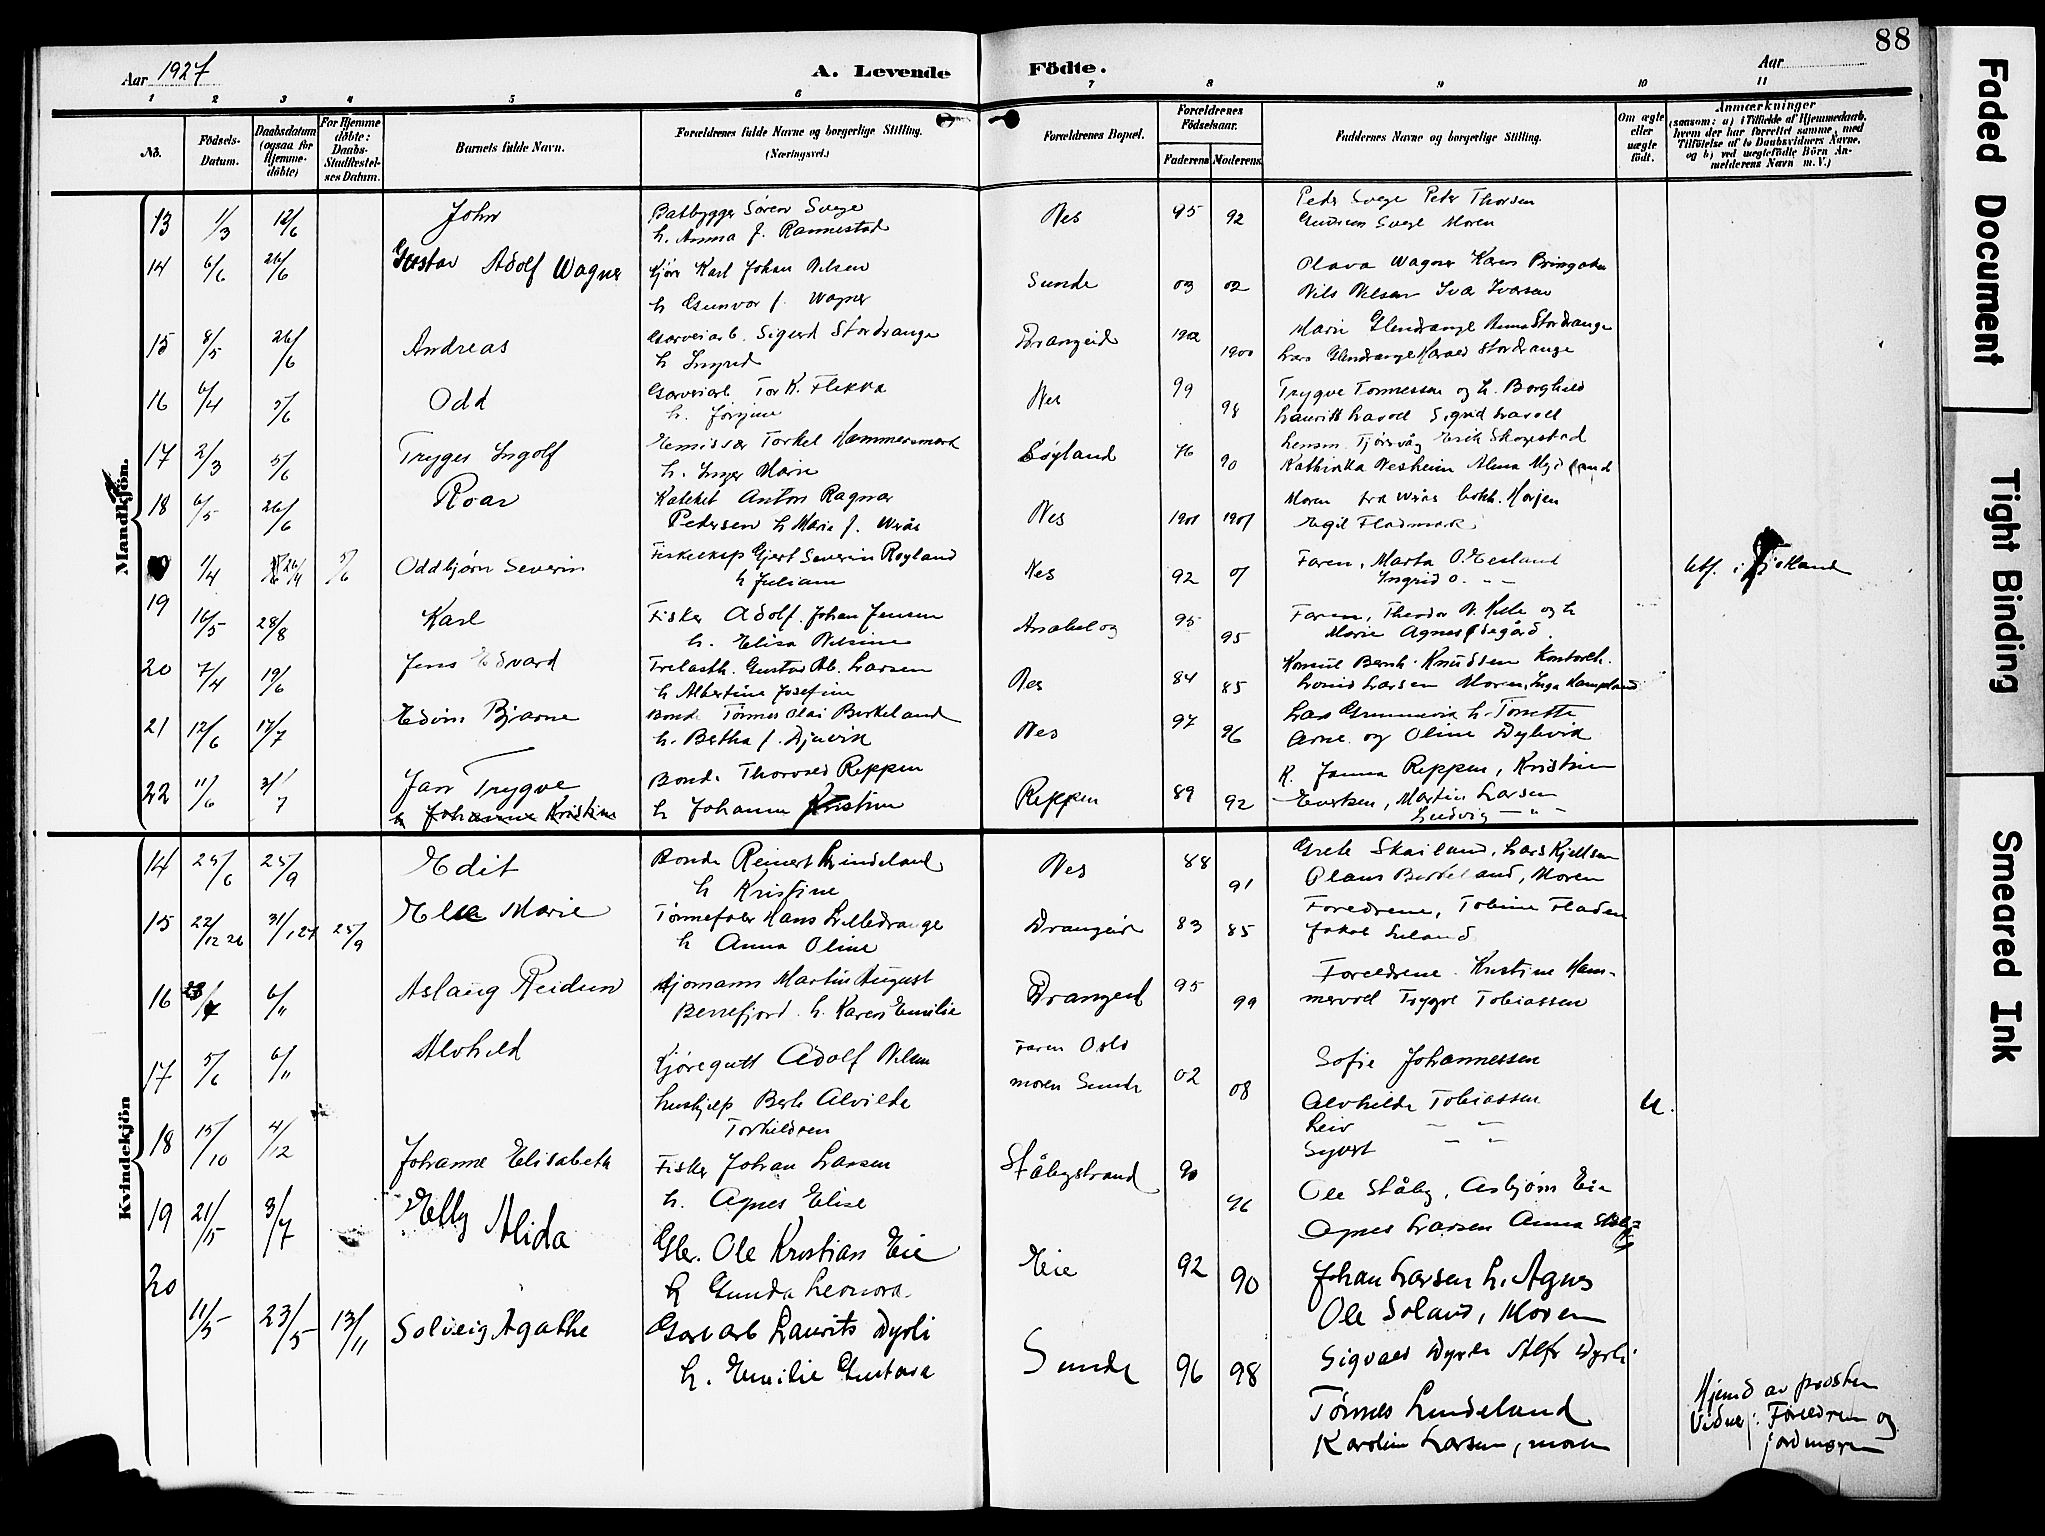 88
Aar 1927
A. Levende
Födte.
Aar
1 2 3 4 5 6 7 8 9 10 11
No.
Födsels-
Datum.
Daabsdatum
(ogsaa for
Hjemme-
döbte)
For Hjemme
döbte:
Daabs-
Stadfæstel-
ses Datum.
Barnets fulde Navn.
Forældrenes fulde Navne og borgerlige Stilling.
(Næringsvei.)
Forældrenes Bopæl.
Forældrenes
Födselsaar.
Faderens Moderens
Faddernes Navne og borgerlige Stilling.
Om ægte
eller
uægte
födt.
Anmærkninger
(saasom: a) i Tilfælde af Hjemmedaab,
hvem der har forrettet samme, med
Tilföielse af to Daabsvidners Navne,
og b) ved uægtefödte Börn An-
melderens Navn m. V.)
Mandkjön.
13 1/3 12/6 John Baatbygger Søren Svege Nes 95 92 Peder Svege Peder Thorsen
h. Anna f. Rannestad Gudrun Svege Moren
14 6/6 26/6 Gustav Adolf Wagner Kjør Karl Johan Nilsen Sunde 03 02 Olava Wagner
h Gunvor f. Wagner Nils Nilsen Ivar Iversen
15 8/5 26/6 Andreas Garveriarb. Sigurd Stordrange Drangeid 1902 1900 Marie Glendrange Anna Stordrange
h Ingrid Lars Glendrange Harald Stordrange
16 6/4 5/6 Odd Garveriarb Tor K. Flikka Nes 99 98 Trygve Tønnessen og h. Borghild
h. Jørgine Lauritz Lavoll Sigrid Lavoll
17 2/3 5/6 Trygve Ingolf Emissær Torkel Hammersmark Løyland 76 90 Lensm. Tjørsvåg Erik Skogestad
h. Inger Marie Kathinka Nesheim Alma
18 6/5 26/6 Roar Kateket Anton Ragnar Nes 1901 1907 Moren
Petersen h Marie f. Werås Egil Fladmark
1/4 5/6 Oddbjørn Severin Gjert Severin Røyland Nes 92 07 Faren, Marta O. Eesland
h Juliane Ingrid O. - " -
19 16/5 28/8 Karl Fisker Adolf Johan Jensen 95 95 Faren, Theodor N. og h
h. Elisa Nilsine Marie Agnes Ødegård.
20 7/4 19/6 Jens Edvard Trelasth. Gustav Ab. Larsen Nes 84 85 Konsul Bernh. Knudsen Kontorch.
h Albertine Josefine Lovise Larsen Moren, Inga
21 12/6 17/7 Edvin Bjarne Bonde Tønnes Olai Birkeland Nes 97 96 Lars h. Tonette
h. Bertha f. Djuvik Arne og Oline Dybvik
22 11/6 31/7 Jan Trygve Bonde Thorvald Reppen Reppen 89 92 K. Janna Reppen, Kristine
h Johanne Kristine h Johanne Kristine Evertsen, Martin Larsen
Ludvig - " -
Kvindekjön
14 29/6 25/9 Edit Bonde Reinert Lindeland Nes 88 91 Grete Skailand, Lars Kjellsen
h Kristine Olaus Birkeland, Moren
15 22/12 26 31/1 27 25/9 Ella Marie Tønnefabr Hans Lilledrange Drangeid 83 85 Foreldrene, Tobine Fladen
h Anna Oline Jakob
16 6/11 Aslaug Reidun Sjømann Martin August Drangeid 95 99 Foreldrene. Kristine Ham-
Berrefjord h. Karen Emilie mervoll Trygve Tobiassen
17 5/6 6/11 Alvhild Kjøregutt Adolf Nilsen Faren Oslo 02 08 Sofie Johannessen
Hushjelp Berte Alvilde moren Sunde Alvhilde Tobiassen U.
Torkildsen Leiv - " -
Syvert - " -
18 15/10 4/12 Johanne Elisabeth Fisker Johan Larsen Ståbystrand 90 96 Ole Ståby, Asbjørn Eie
h. Agnes Elise Agnes Larsen Anna
19 21/5 3/7 Elly Alida Gbr. Ole Kristian Eie Eie 92 90 Johan Larsen h. Agnes
h Gunda Leonora Ole Soland, Moren
20 11/5 23/5 13/11 Solveig Agathe Garvarb Laurits Dyrli Sunde 96 98 Sigvald Dyrli Alfr Dyrli
h. Emilie Gustava Tønnes Lindeland
Karoline Larsen, moren
Hjemd av prosten
Vidner: Foreldren og
jordmoren
Faded Document
Tight Binding
Smeared Ink